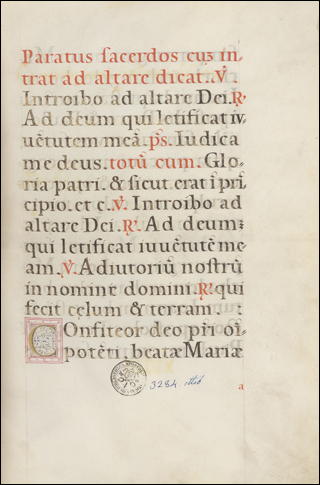 Paratus sacerdos cuȝ in
trat ad altare dicat. .V̷.
Introibo ad altare Dei. R̷.
Ad deum qui letificat iu
uētutem meā. ps. Iudica
me deus. totū cum. Glo
ria patri. & sicut erat ī pri
cipio. et c. V̷. Introibo ad
altare Dei. R̷. Ad deum:
qui letificat iuuētutē me
am. V̷. Adiutoriū nostrū
in nomine domini. R̷. qui
fecit celum & terram. :
Confiteor deo pr̄i oī
potēti. beatæ Mariæ
3284
a